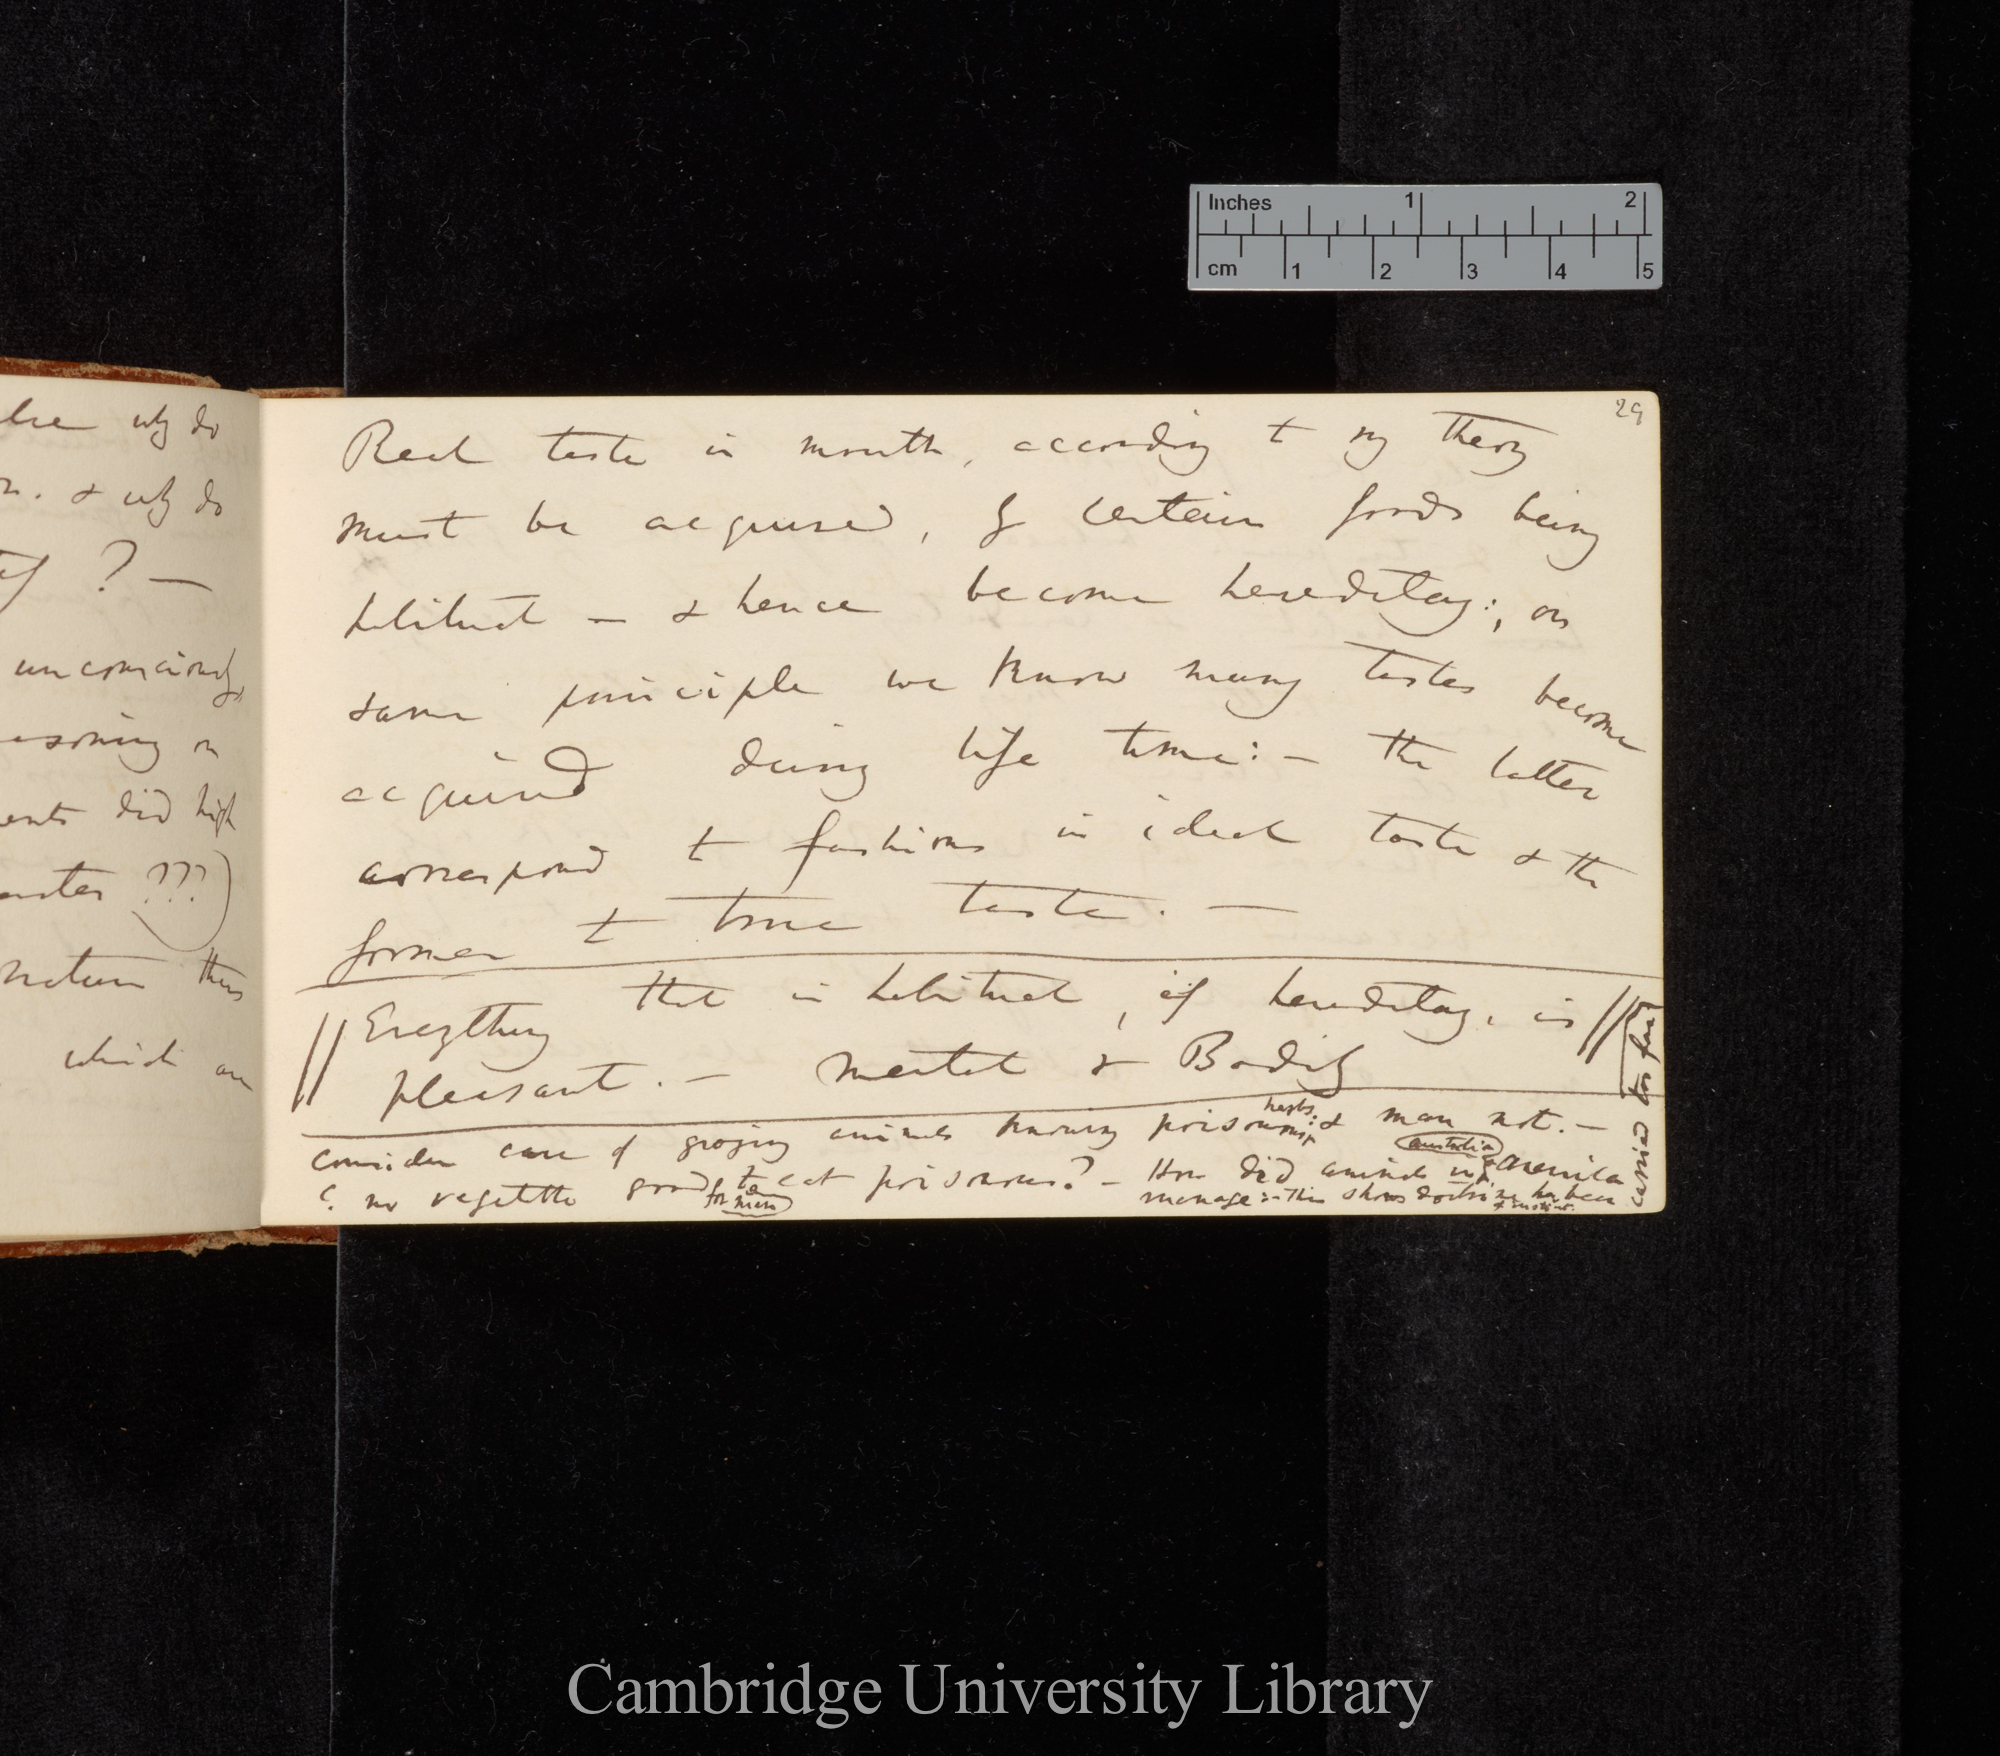 Inches 1 2
cm 1 2 3 4 5
why do
& why do
? —
unconsciously
did high
???)
nature thus
which are
29
Real taste in mouth, according to my theory
must be acquired, by certain foods being
habitual — & hence become hereditary:, on
same principle we know many tastes become
acquired during life time: — the latter
correspond to fashions in ideal taste & the
former to true taste. —
Everything that is habitual, if hereditary, is
pleasant. — mental & Bodily
Consider case of grazing animals knowing poisonous herbs. & man not. —
no vegetable good to eat for man poisonous? — How did animals in Australia & America
manage :— This shows doctrine & instinct. has been
carried too far
Cambridge University Library